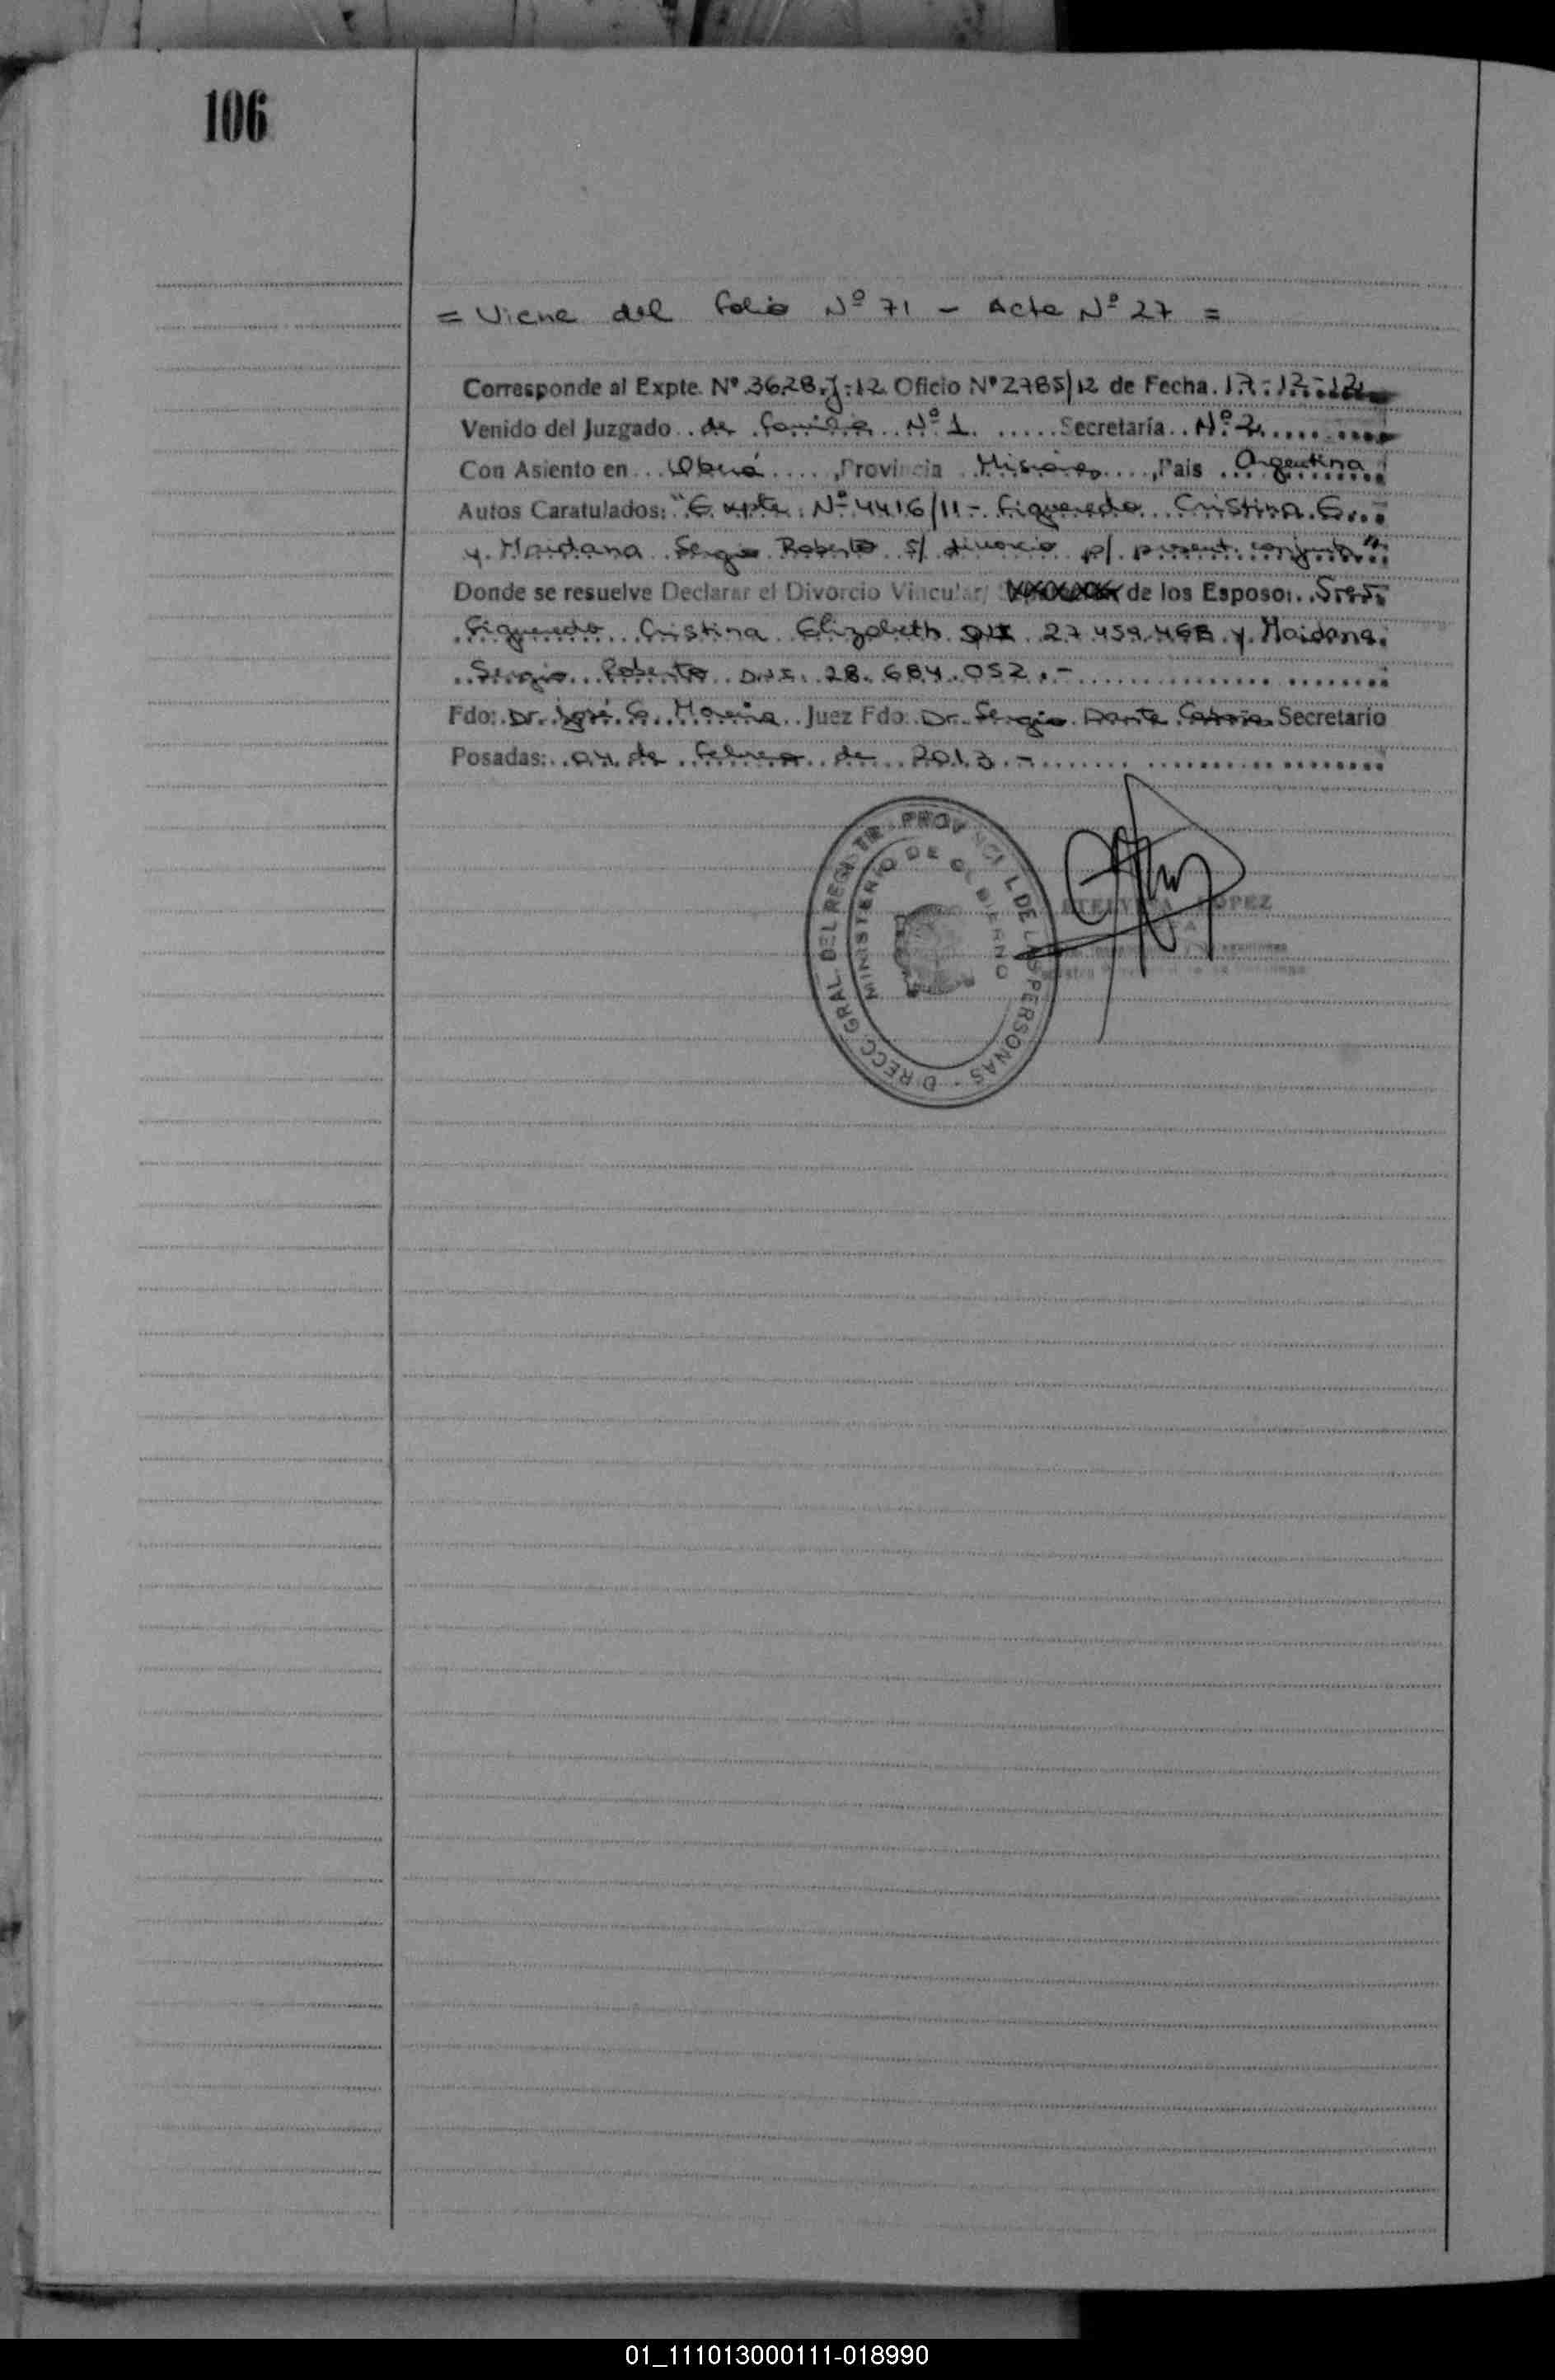 106
= Viene del folio Nº 71 - Acta Nº 27 =
Corresponde al Expte. Nº 3628-J-12 Oficio Nº 2785/12 de Fecha 17-12-12
Venido del Juzgado de familia Nº 1 Secretaría Nº 2
Con Asiento en Oberá, Provincia Misiones, País Argentina
Autos Caratulados: "Expte. Nº 4416/11 - Figueredo Cristina E.
y Maidana Sergio Roberto s/ divorcio p/ present. conjunta"
Donde se resuelve Declarar el Divorcio Vincular/ de los Esposos Sres.
Figueredo Cristina Elizabeth DNI 27.459.468 y Maidana
Sergio Roberto D.N.I. 28.684.052.-
Fdo: Dr. José G. Moreira Juez Fdo: Dr. Sergio Dante Secretario
Posadas: 04 de febrero de 2013.-
DIRECC. GRAL. DEL REGISTR. PROVINCIAL DE LAS PERSONAS
MINISTERIO DE GOBIERNO
ETELVINA LOPEZ
01_111013000111-018990